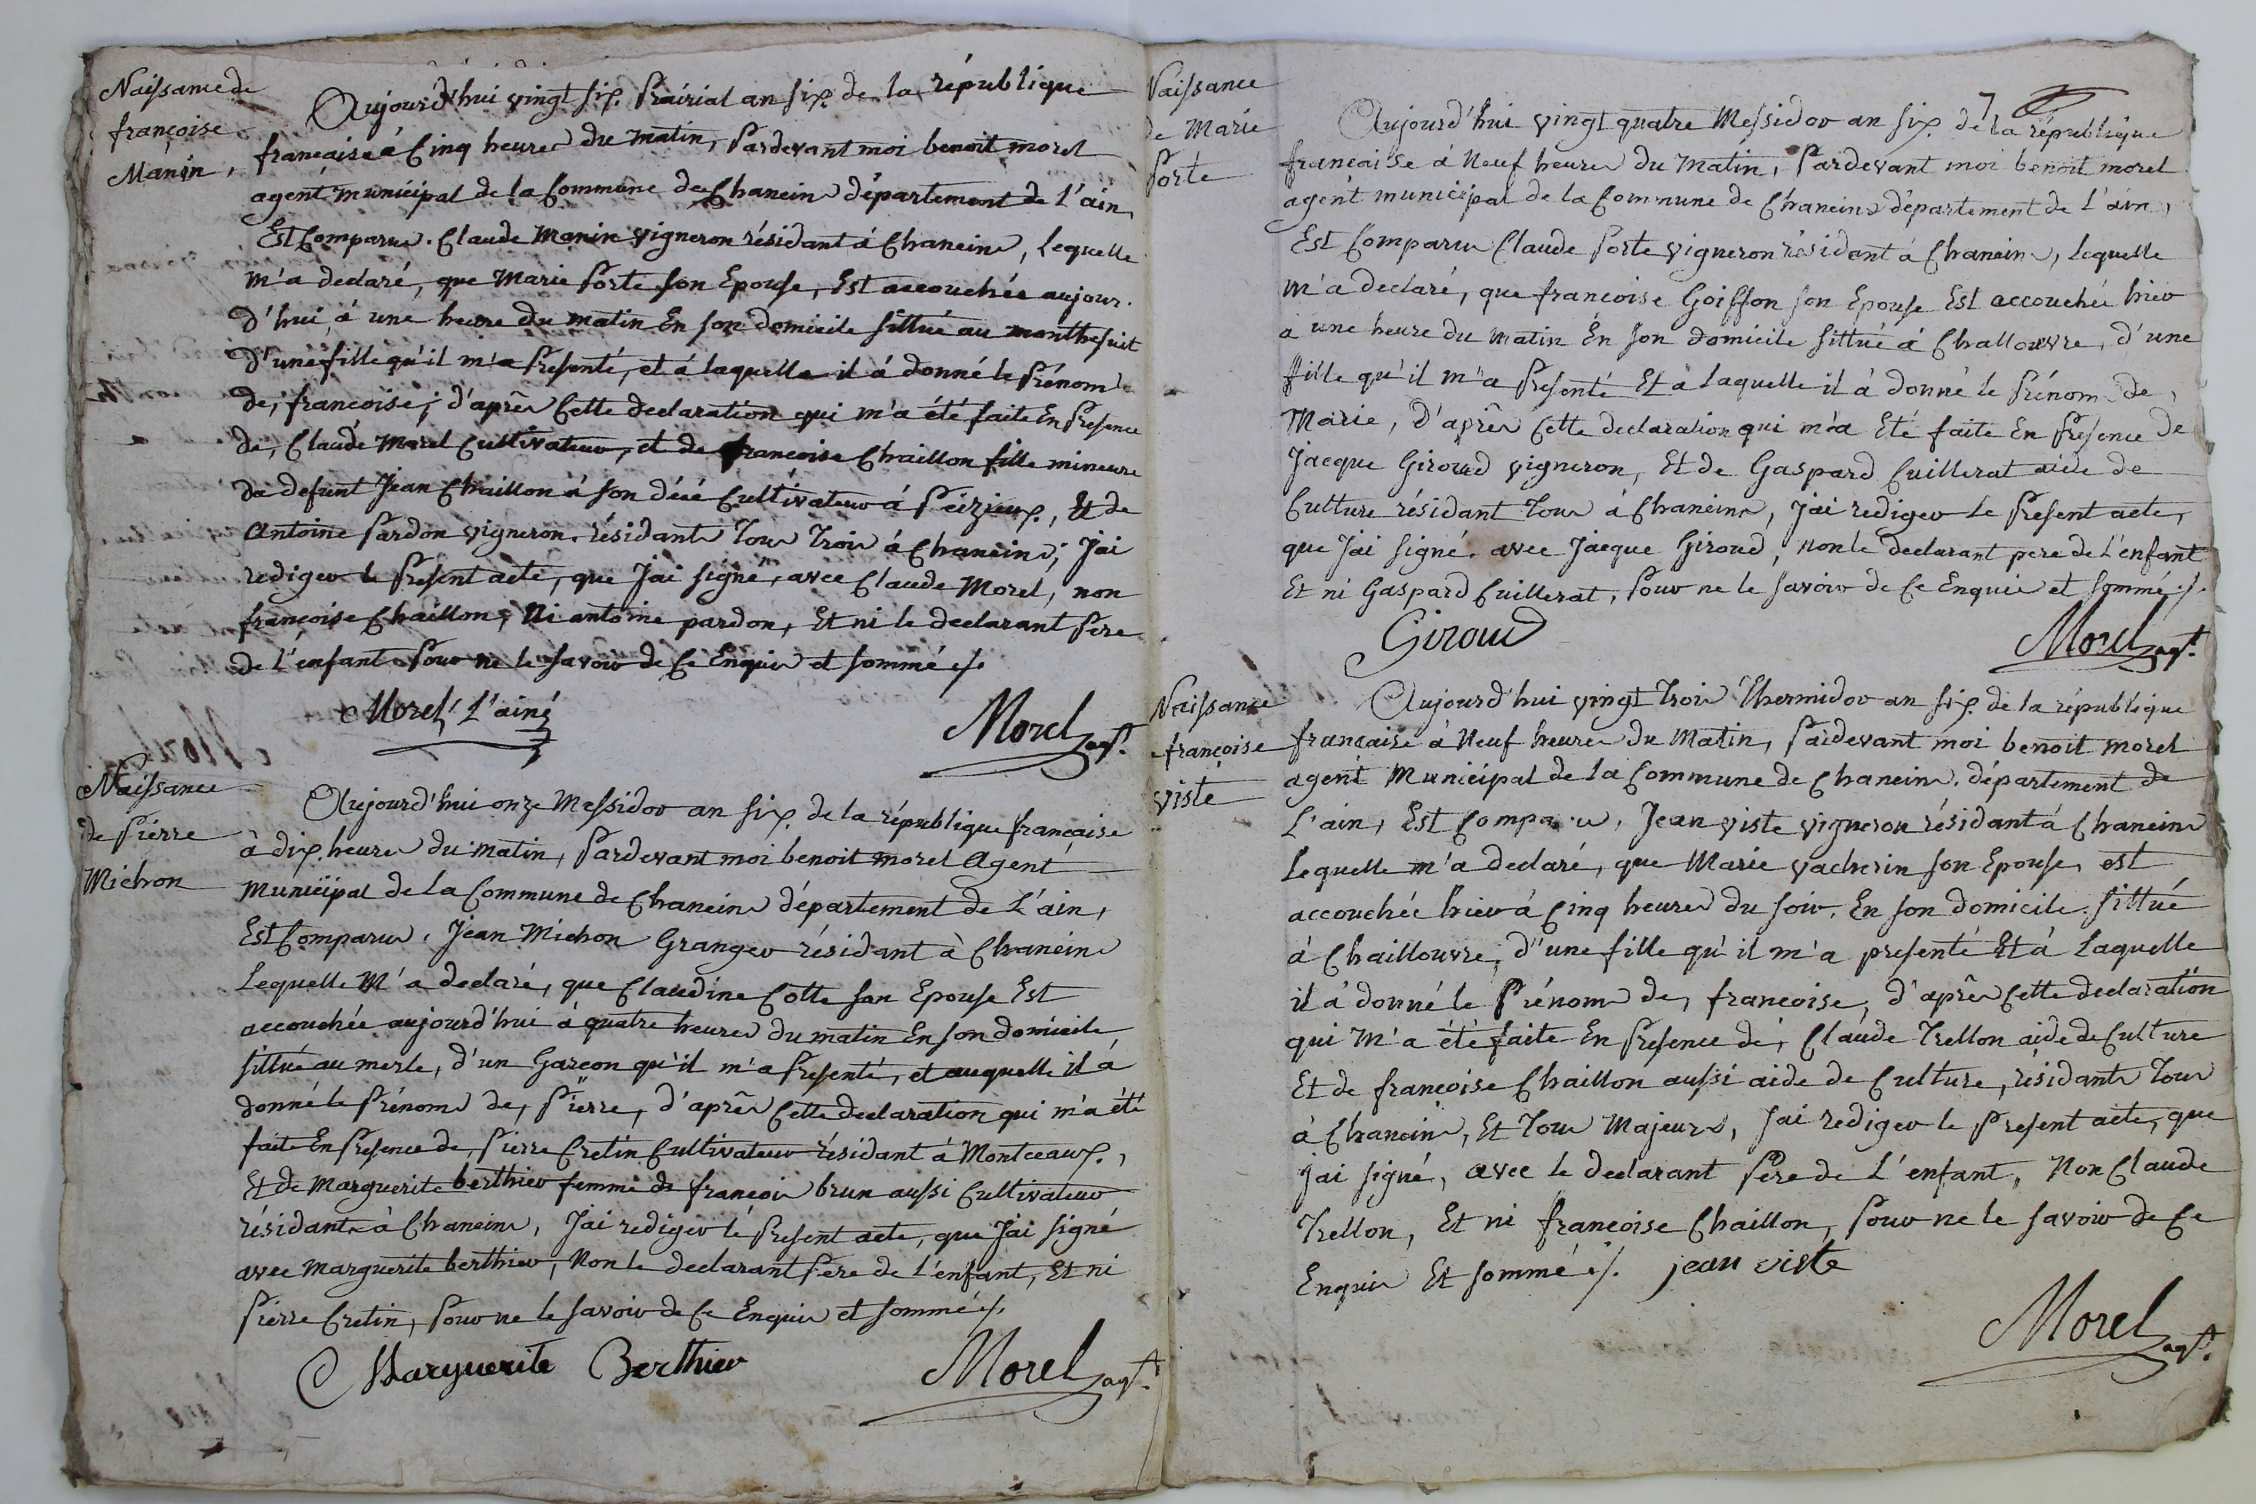 Naissance de
françoise
Manin,
Aujourd'hui vingt six prairial an six de la république
francaise à Cinq heures du matin, pardevant moi benoit morel
agent municipal de la Commune de Chaneins département de L'ain,
Est Comparus. Claude Manin vigneron résidant à Chaneins, Lequelle
m'a declaré, que Marie Porte son Epouse, Est accouchée aujour.
d'hui à une heure du matin En son domicile sittué au
d'une fille qu'il m'a presenté, et à laquelle il à donné le prénom
de, francoise; d'après Cette declaration qui m'a été faite En presence
de, Claude Morel Cultivateur, et de francoise Chaillon fille mineure
de defunt Jean Chaillon à son décé Cultivateur à Peizieux, Et de
Antoine Pardon vigneron, résidants tous trois à Chaneins; J'ai
rediger le present acte, que J'ai signé, avec Claude Morel, non
françoise Chaillon, Ni antoine pardon, Et ni le declarant pere
de L'enfant pour ne le savoir de Ce Enquis et sommé ./.
Morel L'ainé
Morel agt.
Naissance
de Pierre
Michon
Aujourd'hui onze Messidor an six de la république francaise
à dix heures du matin, pardevant moi benoit morel Agent
Municipal de la Commune de Chaneins département de L'ain,
Est Comparus, Jean Michon Granger résidant à Chaneins
Lequelle M'a declaré, que Claudine Cotte son Epouse Est
accouchée aujourd'hui à quatre heures du matin En son domicile
sittué au merle, d'un Garcon qu'il m'a presenté, et auquelle il à
donné le prénom de, Pierre, d'après Cette declaration qui m'a été
faite En presence de, Pierre Cretin Cultivateur résidant à Montceaux,
Et de Marguerite berthier femme de francois brun aussi Cultivateur
résidants à Chaneins, J'ai rediger le present acte, que J'ai signé
avec Marguerite berthier, Non le declarant pere de L'enfant, Et ni
Pierre Cretin, pour ne le savoir de Ce Enquis et sommé ./.
Marguerite Berthier
Morel agt.
7
Naissance
de Marie
Porte
Aujourd'hui vingt quatre Messidor an six de la république
francaise à Neuf heures du Matin, pardevant moi benoit morel
agent municipal de la Commune de Chaneins département de L'ain,
Est Comparus Claude Porte vigneron résidant à Chaneins, Lequelle
m'a declaré, que francoise Goiffon son Epouse Est accouchée hier
à une heure du matin En son domicile sittué à Challouvre, d'une
fille qu'il m'a presenté Et à laquelle il à donné le prénom de,
Marie, d'après Cette declaration qui m'a Eté faite En presence de
Jacque Giroud vigneron, Et de Gaspard Cuillerat aide de
Culture résidant tous à Chaneins, J'ai rediger le present acte,
que J'ai signé. avec Jacque Giroud, non le declarant pere de L'enfant
Et ni Gaspard Cuillerat, pour ne le savoir de Ce Enquis et sommé ./.
Giroud
Morel agt.
Naissance
françoise
viste
Aujourd'hui vingt trois thermidor an six de la république
francaise à Neuf heures du Matin, pardevant moi benoit morel
agent Municipal de la Commune de Chaneins. département de
L'ain, Est Comparus, Jean viste vigneron résidant à Chaneins
Lequelle m'a declaré, que Marie vacherin son Epouse, est
accouchée hier à Cinq heures du soir, En son domicile sittué
à Chaillouvre, d'une fille qu'il m'a presenté Et à Laquelle
il à donné le Prénom de, francoise, d'après Cette declaration
qui M'a été faite En presence de, Claude Trellon aide de Culture
Et de francoise Chaillon aussi aide de Culture, résidants tous
à Chaneins, Et tous Majeurs, J'ai rediger le present acte, que
J'ai signé, avec le declarant Pere de L'enfant, Non Claude
Trellon, Et ni francoise Chaillon, pour ne le savoir de Ce
Enquis Et sommé ./. jean viste
Morel agt.